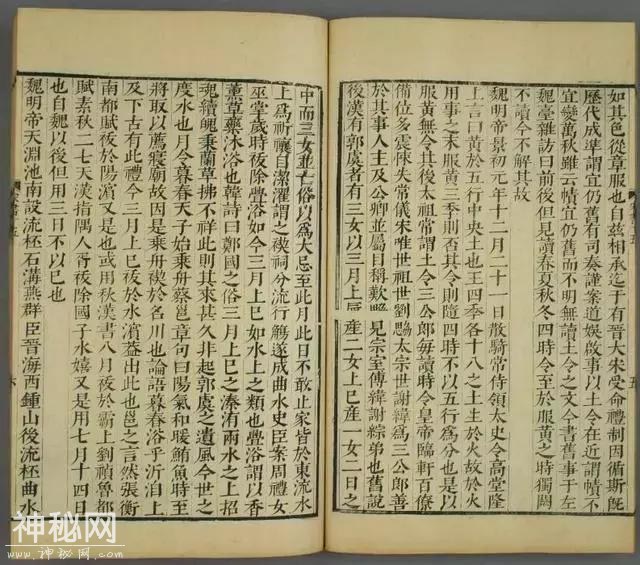 如其色從章服也自茲相承迄于有晉大宋受命禮制因循斯既
歷代成準謂宜仍舊有司奏謹案道娛啟事以土令在近謂幘不
宜變萬秋雖云幘宜仍舊而不明無讀土令之文今書舊事于左
魏臺雜訪曰前後但見讀春夏秋冬四時令至於服黃之時獨闕
不讀今不解其故
魏明帝景初元年十二月二十一日散騎常侍領太史令高堂隆
上言曰黃於五行中央土也王四季各十八之土生於火故於火
用事之末服黃三季則否其令則隨四時不以五行為分也是以
服黃無令其後太祖常謂土令三公郎每讀時令皇帝臨軒百僚
備位多震悚失常儀宋唯世祖世劉勰太宗世謝緯為三公郎善
於其事人主及公卿並屬目稱歎勰見宗室傳緯謝綜弟也舊說
後漢有郭虞者有三女以三月上辰產二女上巳產一女二日之
中而三女並亡俗以為大忌至此月此日不敢止家皆於東流水
上為祈禳自潔濯謂之禊祠分流行觴遂成曲水史臣案周禮女
巫掌歲時祓除釁浴如今三月上巳如水上之類也釁浴謂以香
薰草藥沐浴也韓詩曰鄭國之俗三月上巳之溱有兩水之上招
魂續魄秉蘭草拂不祥此則其來甚久非起郭虞之遺風今世之
度水也月令暮春天子始乘舟蔡邕章句曰陽氣和暖鮪魚時至
將取以薦寢廟故因是乘舟禊於名川也論語暮春浴乎沂自上
及下古有此禮今三月上巳祓於水濱蓋出此也邕之言然張衡
南都賦祓於陽濱又是也或用秋漢書八月祓於霸上劉禎魯都
賦素秋二七天漢指隅人胥祓除國子水嬉又是用七月十四日
也自魏以後但用三日不以巳也
魏明帝天淵池南設流杯石溝燕群臣晉海西鍾山後流杯曲水
神秘网
www.神秘网.com